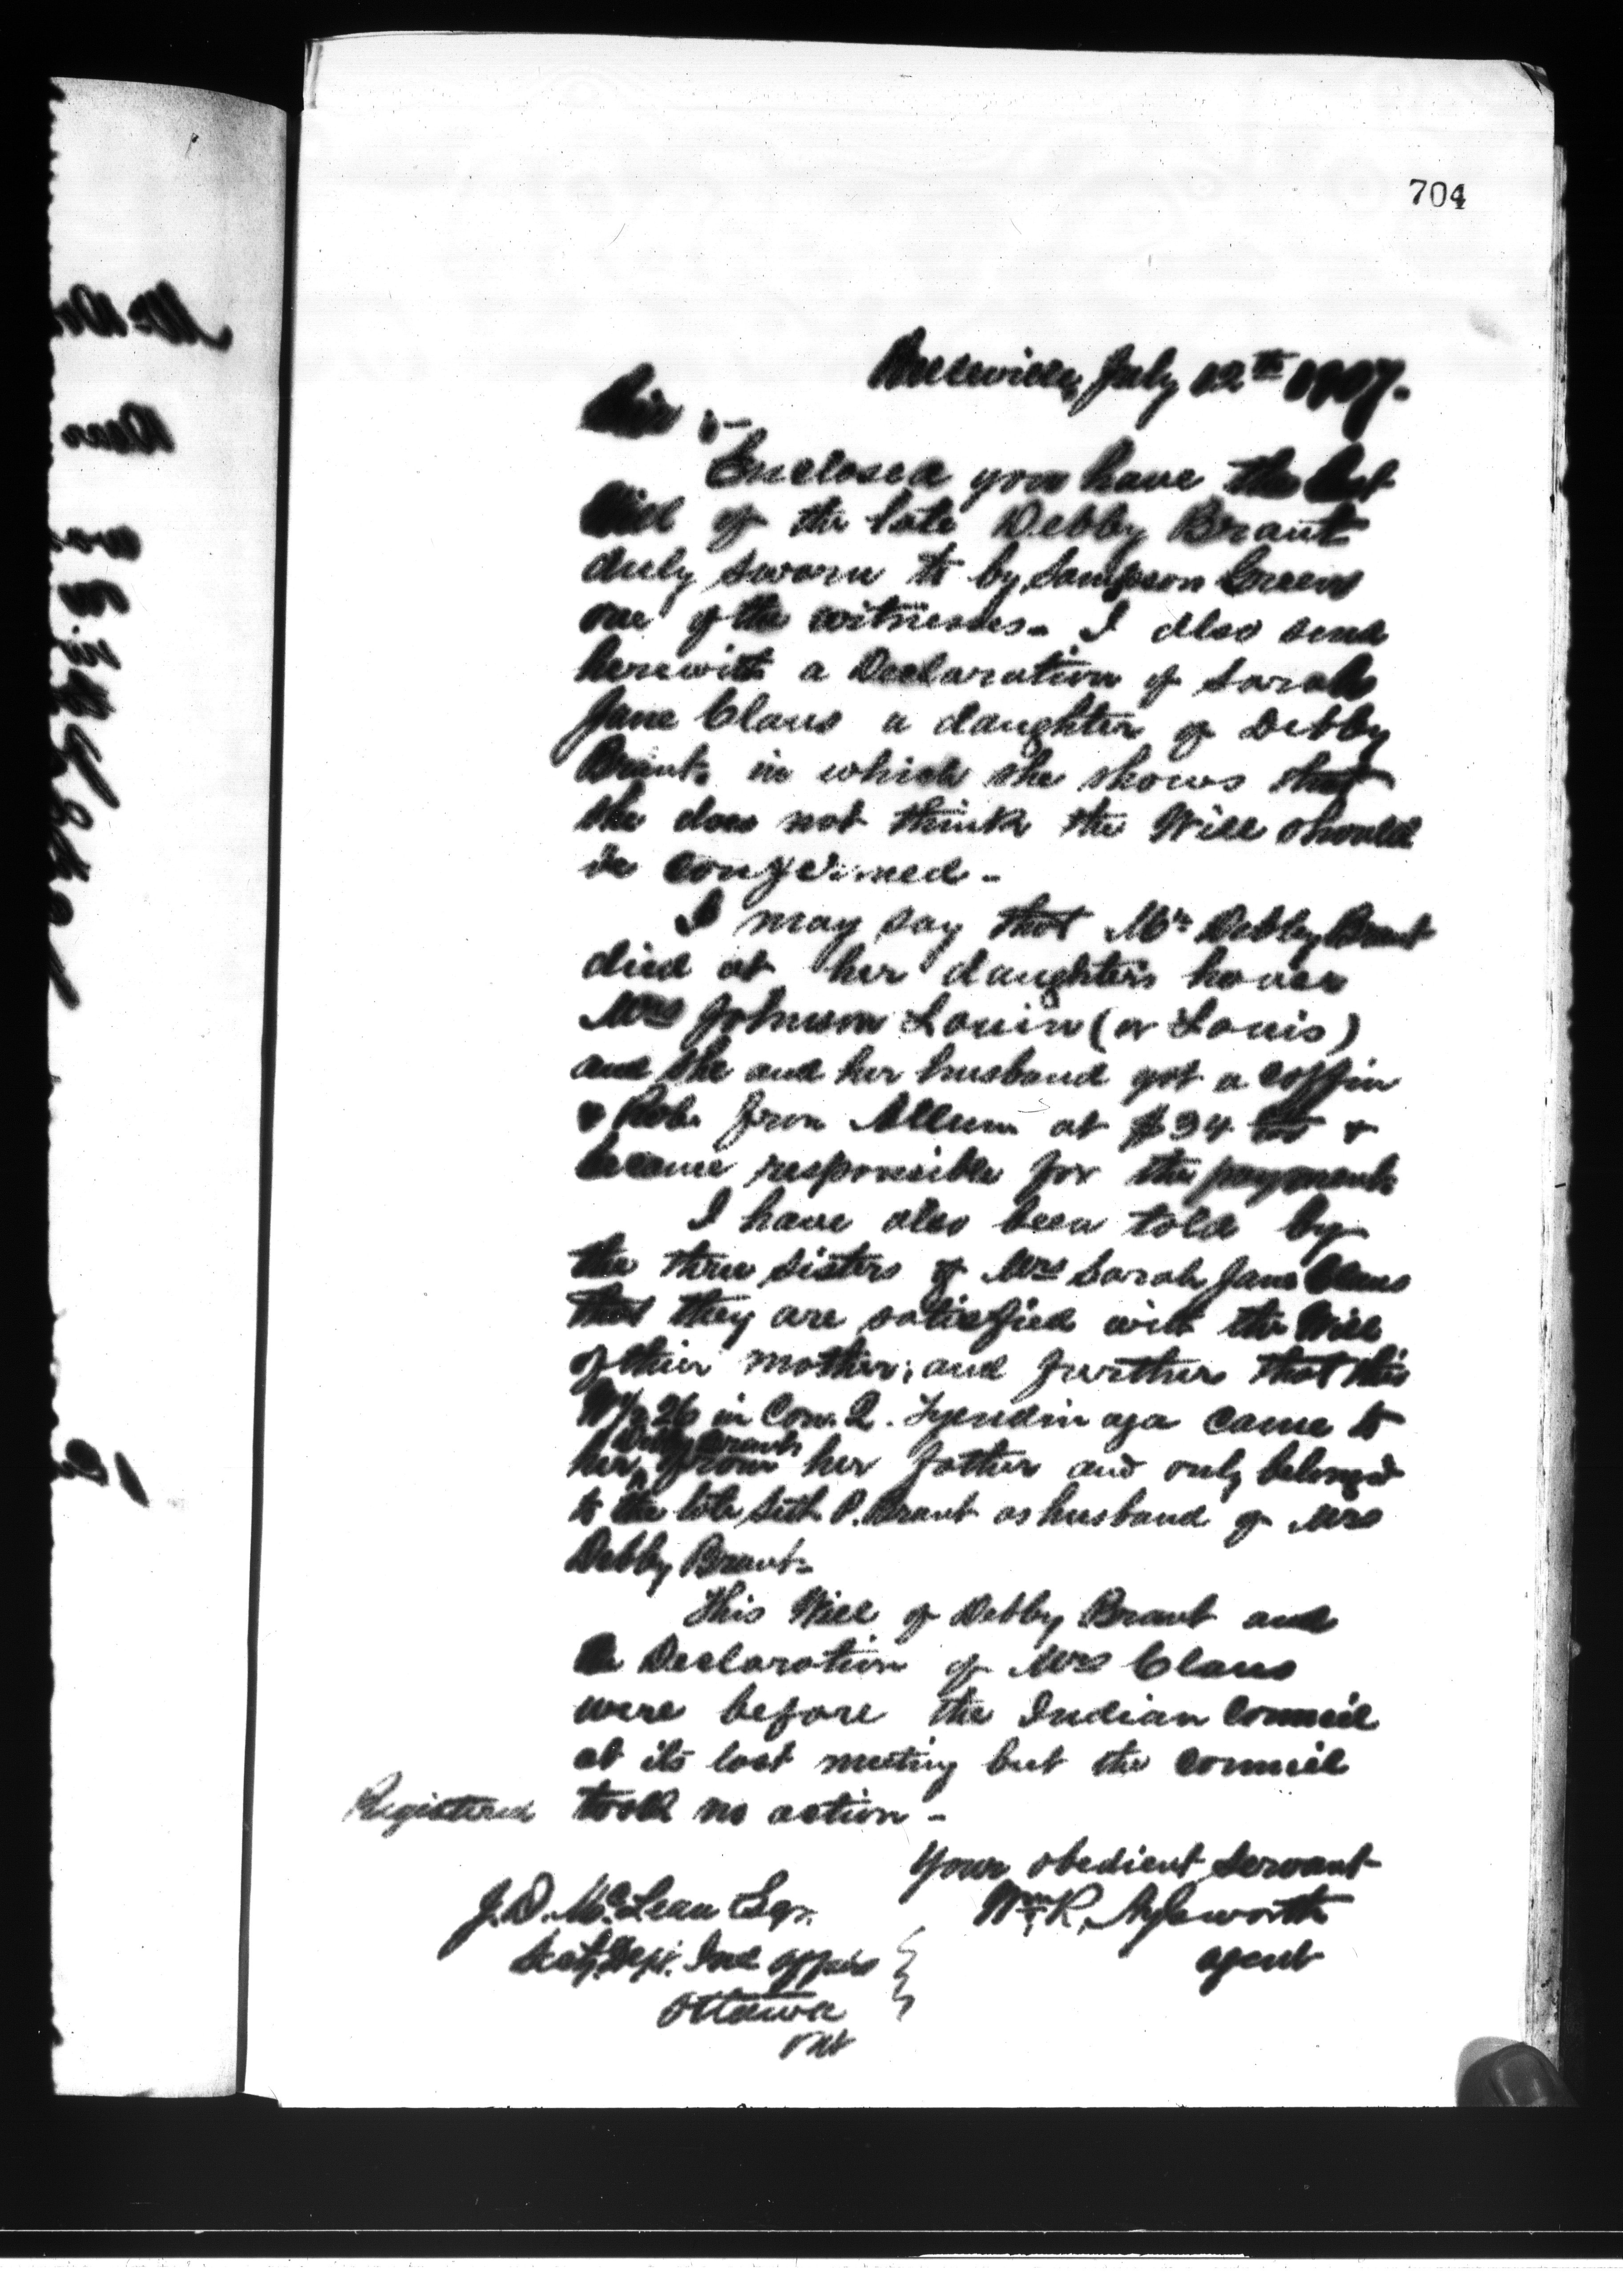 704
Belleville, July 12th 1907.
Sir :-
Enclosed you have the last
Will of the late Debby Brant
duly sworn to by Sampson Green
one of the witnesses. I also send
herewith a Declaration of Sarah
Jane Claus a daughter of Debby
Brant, in which she shows that
she does not think the Will should
be confirmed -
I may say that Mrs Debby Brant
died at her daughters house
Mrs Johnson Louin (or Louis)
and she and her husband got a coffin
& Robe from Allum at $34 &
became responsible for the payment
I have also been told by
the three sisters of Mrs Sarah Jane Claus
that they are satisfied with the Will
of their mother, and further that this
W½ 26 in Con. 2. Tyendinaga came to
Debby Brant
her from her father and only belonged
to the late Seth P. Brant as husband of Mrs
Debby Brant.
This Will of Debby Brant and
Declaration of Mrs Claus
were before the Indian Council
at its last meeting but the council
Registered took no action -
Your obedient Servant
Wm R. Aylsworth
agent
J. D. McLean Esqr.
Secty. Dept. Ind affairs
Ottawa
Ont